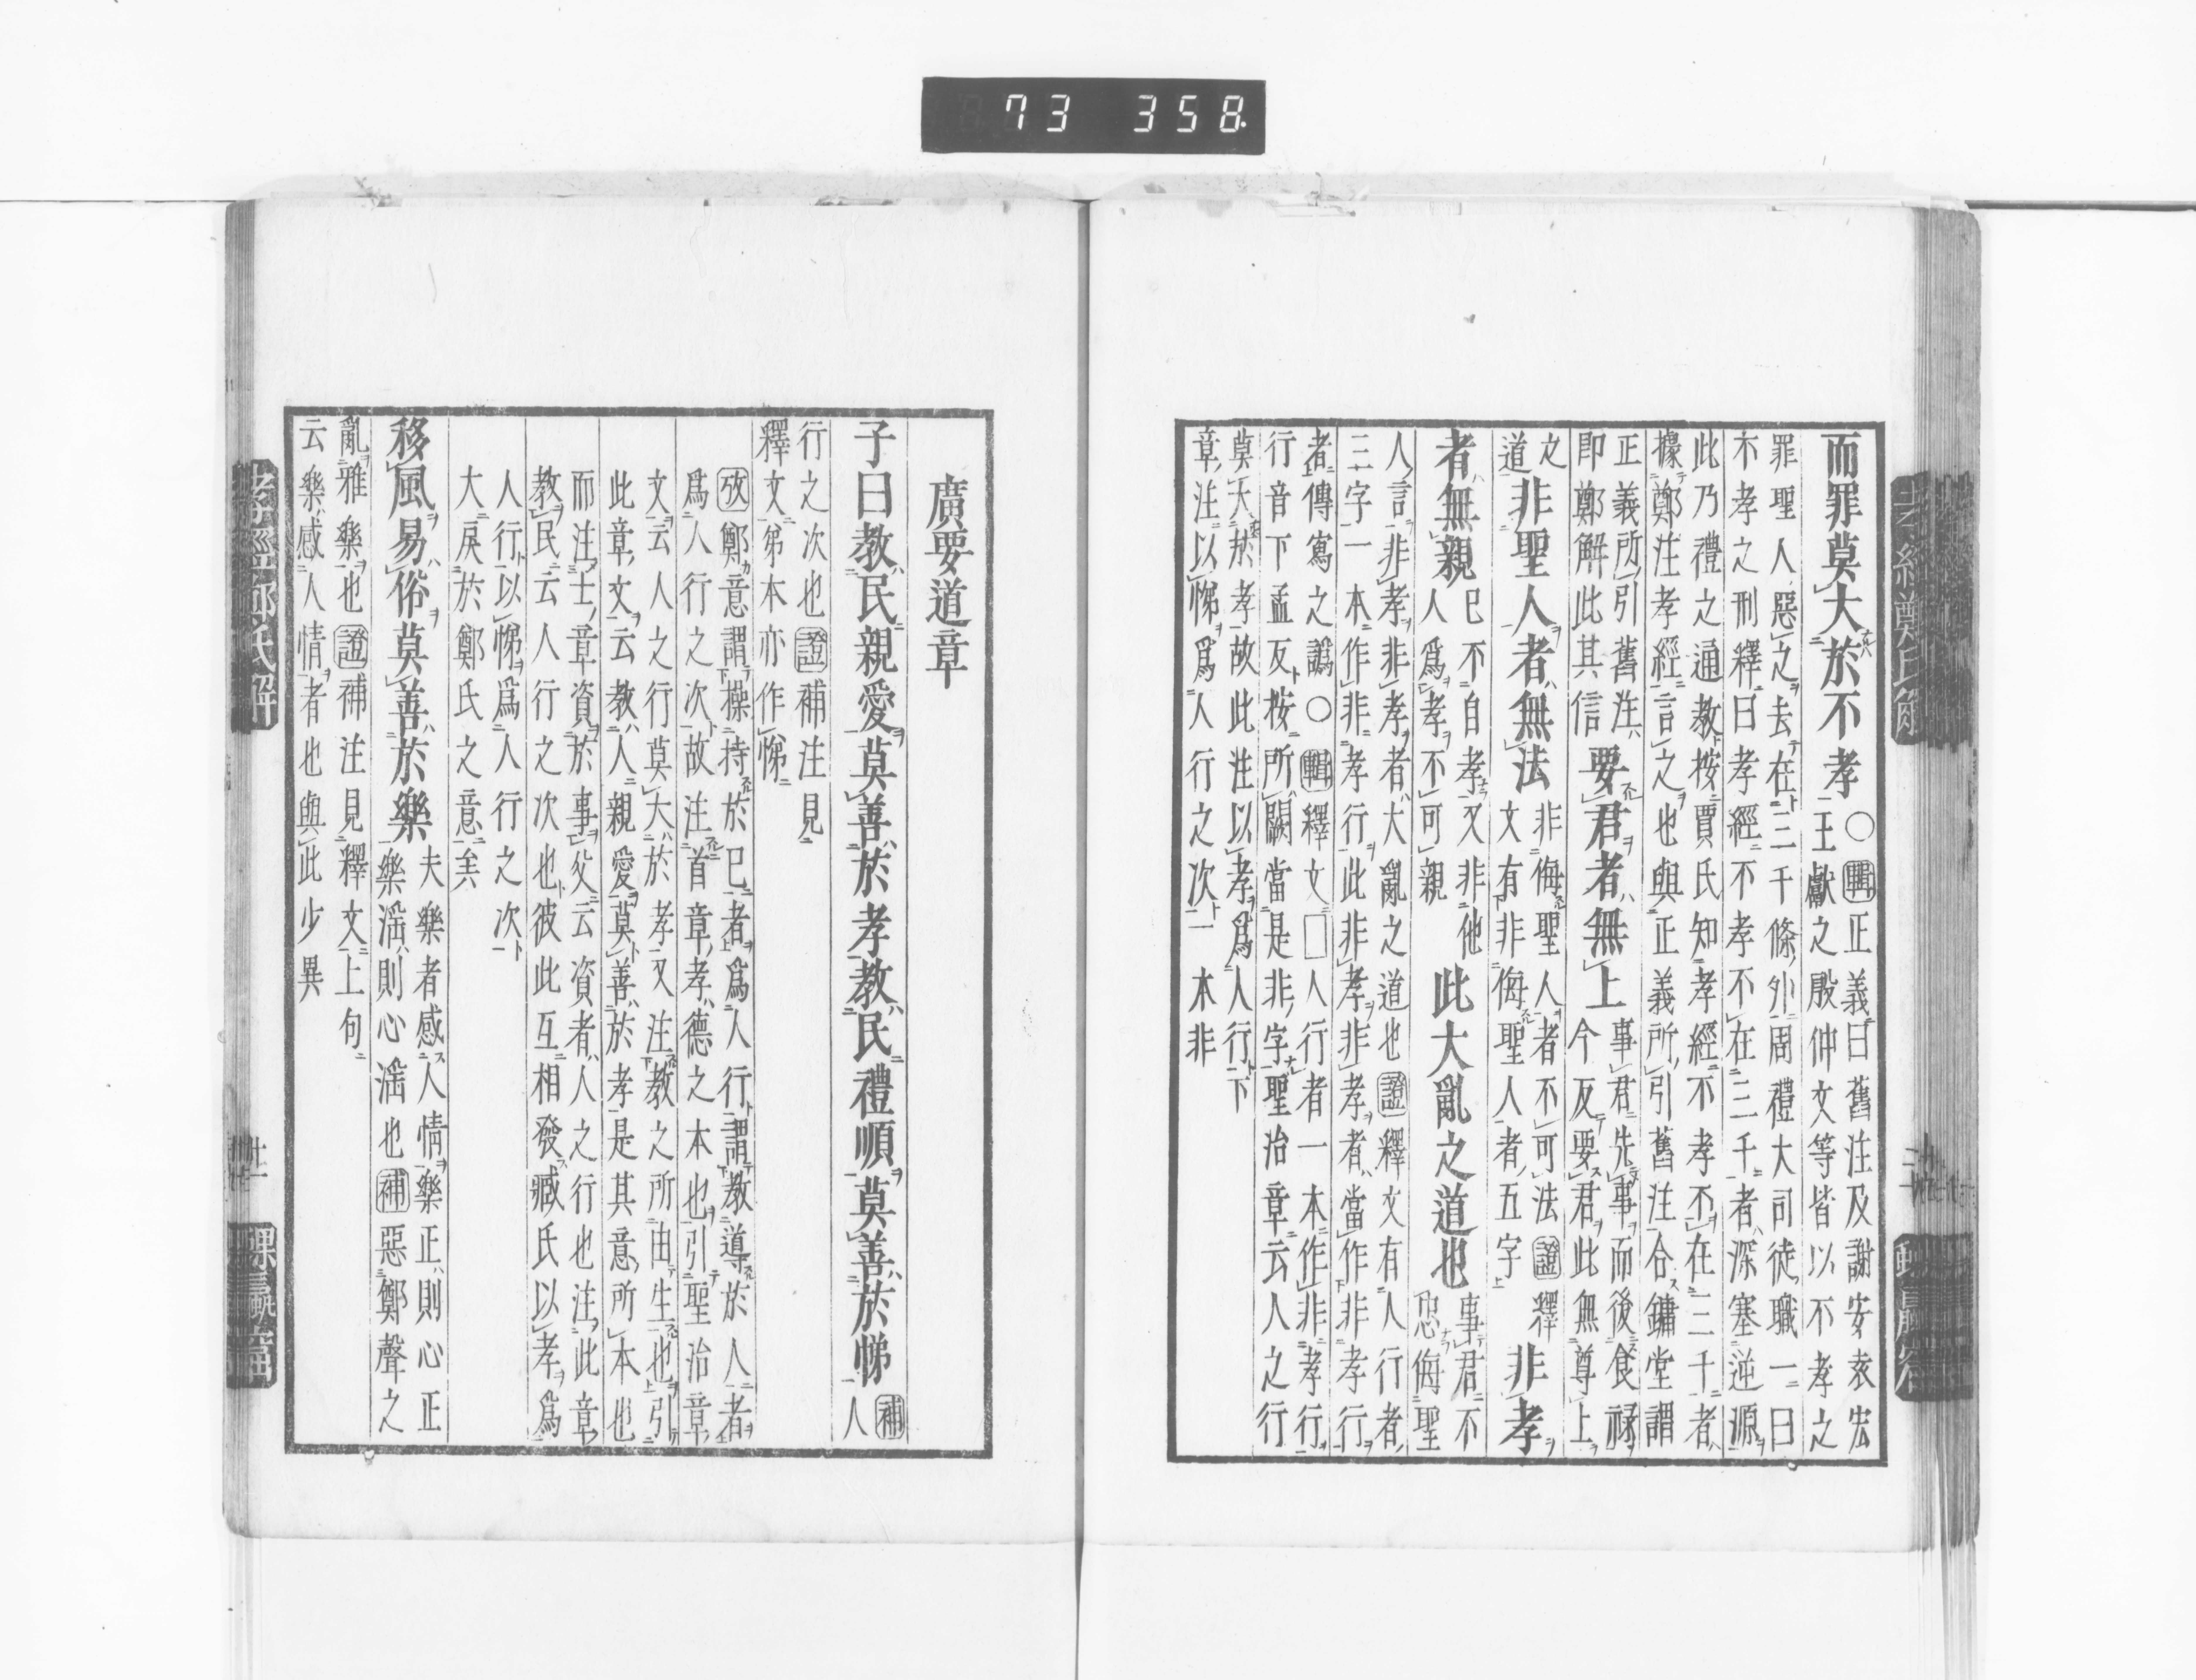 而罪莫大於不孝
○輯正義曰舊注及謝安袁宏
王獻之殷仲文等皆以不孝之
罪聖人惡之去在三千條外周禮大司徒職一曰
不孝之刑釋曰孝經不孝不在三千者深塞逆源
此乃禮之通教按賈氏知孝經不孝不在三千者
據鄭注孝經言之也與正義所引舊注合鏞堂謂
正義所引舊注
即鄭解此其信
要君者無上
事君先事而後食祿
今反要君此無尊上
之
道
非聖人者無法
非侮聖人者不可法證釋
文有非侮聖人者五字
非孝
者無親
已不自孝又非他
人爲孝不可親
此大亂之道也
事君不
忠侮聖
人言非孝非孝者大亂之道也證釋文有人行者
三字一本作非孝行此非孝非孝者當作非孝行
者傳寫之譌○輯釋文□人行者一本作非孝行
行音下孟反按所闕當是非字聖治章云人之行
莫大於孝故此注以孝爲人行下
章注以悌爲人行之次一本非
廣要道章
子曰教民親愛莫善於孝教民禮順莫善於悌
補
人
行之次也證補注見
釋文弟本亦作悌
攷鄭意謂操持於已者爲人行謂教導於人者
爲人行之次故注首章孝德之本也引聖治章
文云人之行莫大於孝又注教之所由生也引
此章文云教人親愛莫善於孝是其意所本也
而注士章資於事父云資者人之行也注此章
教民云人行之次也彼此互相發臧氏以孝爲
人行以悌爲人行之次
大戾於鄭氏之意矣
移風易俗莫善於樂
夫樂者感人情樂正則心正
樂淫則心淫也補惡鄭聲之
亂雅樂也證補注見釋文上句
云樂感人情者也與此少異
孝經鄭氏解
73 358